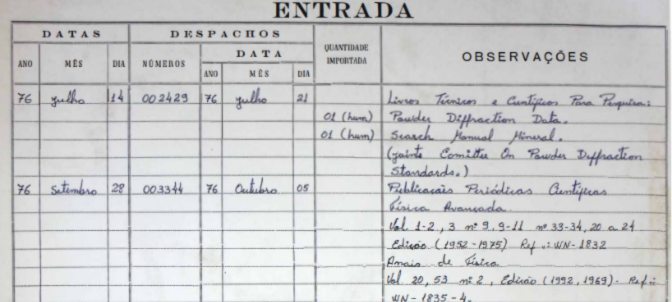 ENTRADA
DATAS DESPACHOS QUANTIDADE IMPORTADA OBSERVAÇÕES
ANO MÊS DIA NÚMEROS DATA
ANO MÊS DIA
76 julho 14 002429 76 julho 21 Livros Técnicos e Científicos Para Pesquisa:
01 (hum) Powder Diffraction Data.
01 (hum) Search Manual Mineral.
(Joints Comittee On Powder Dyffraction
Standards.)
76 Setembro 28 003344 76 Outubro 05 Publicações Periódicas Científicas
Física Avançada.
Vol 1-2, 3 nº 9, 9-11 nº 33-34, 20 a 24
Edição (1952-1975) Ref.: WN-1832
Anais de Física
Vol 20, 53 nº 2, Edição (1992, 1969). Ref.:
WN-1835-4.